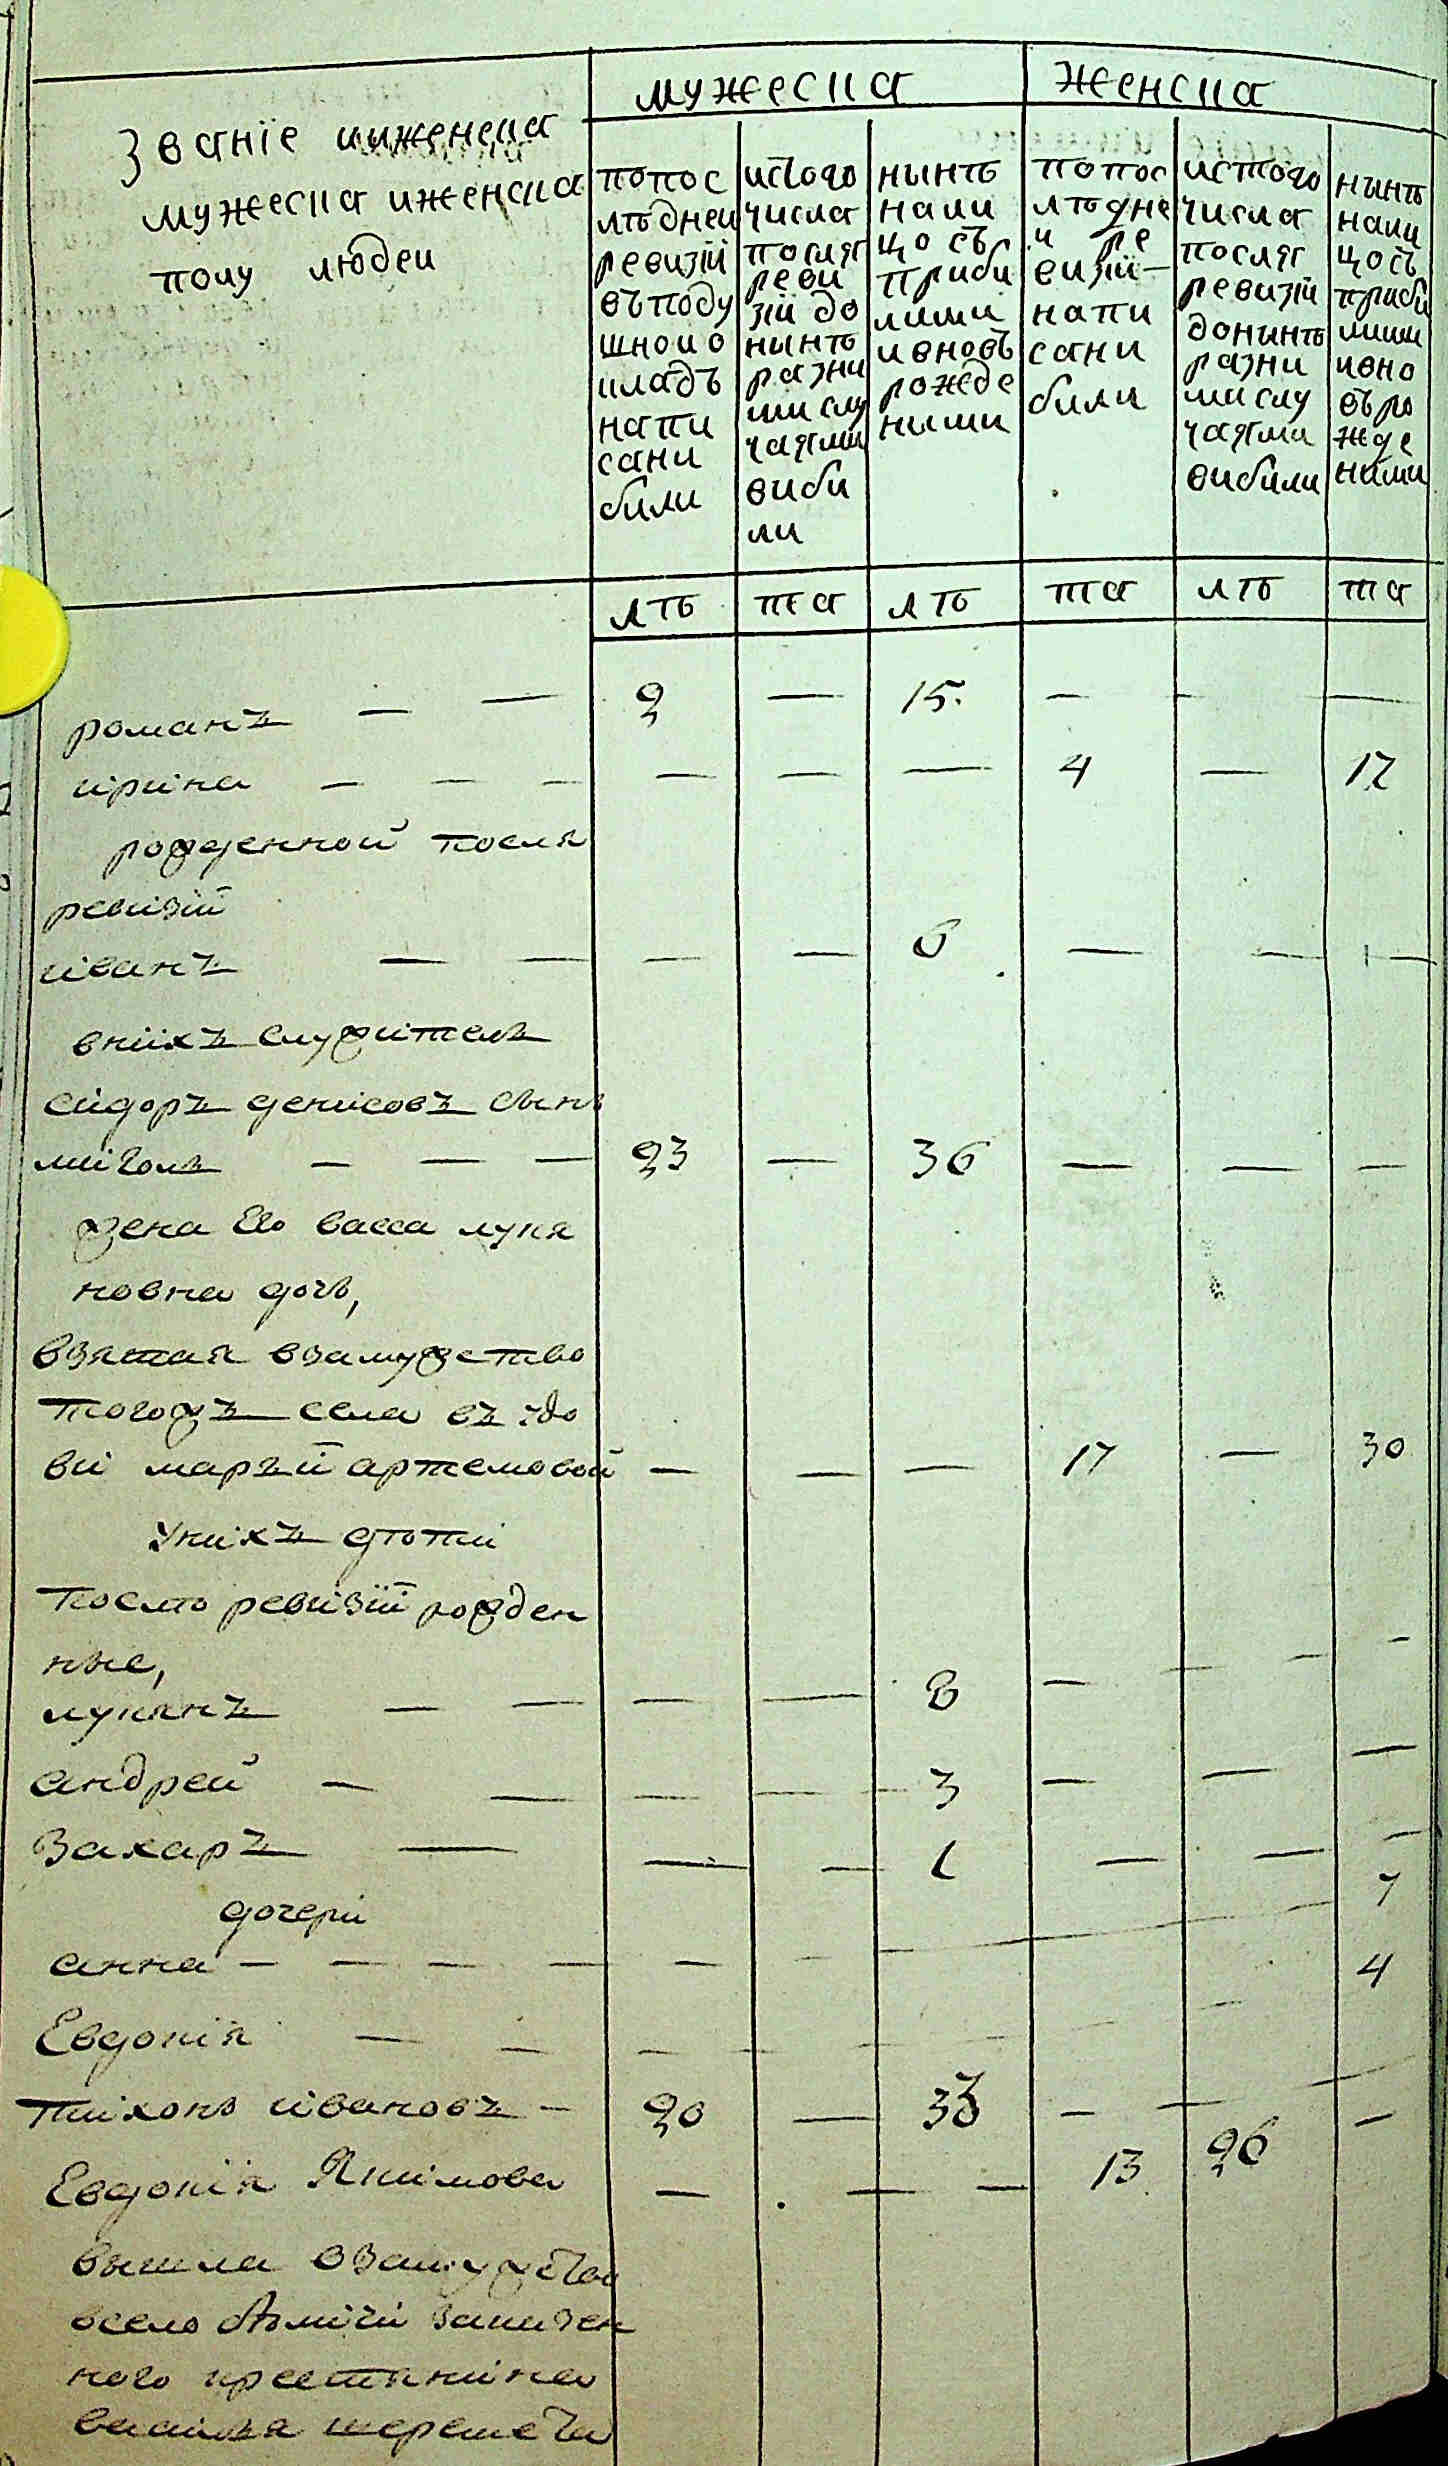 мужеска
женска
Званїе ииженеска
мужеска иженска
полу людеи
попос
лѣднеи
ревизїй
въподу
шноио
иладъ
напи
сани
били
истого
числа
посля
реви
зїй до
нынѣ
разни
ми слу
чаями
виби
ли
нынѣ
нали
цо съ
приби
лими
ивновъ
рожде
ними
попос
лѣдне
и ре
визїй
напи
сани
били
истого
числа
посля
ревизїй
донынѣ
разни
ми слу
чаями
вибили
нынѣ
нали
цо съ
приби
лими
ивно
въро
жде
ними
лѣ та лѣ та лѣ та
романъ — — 2 — 15. — — —
ирина — — — — — — 4 — 12
рожденной посля
ревизїй
иванъ — — — — 6 — — —
внихъ служитель
сидоръ денисовъ сынъ
миголь — — — 23 — 36 — — —
жена Его васса лукя
новна дочь,
взятая взамужство
тогожъ села въ вдо
ви маръи артемовой — — — 17 — 30
Унихъ дѣти
послѣ ревизїй рожден
ные,
лукянъ — — — — 8 — — — —
андрей — — — — — 3 — — —
Захаръ — — — 1 — — —
дочери 7
анна — — — — — — — 4
Евдокїя — — — — — — —
тихонъ ивановъ — 20 — 33 — — —
Евдокїя Якимова — — — 13 26 —
вышла взамужство
всело казен
ного крестянина
василя шереметы